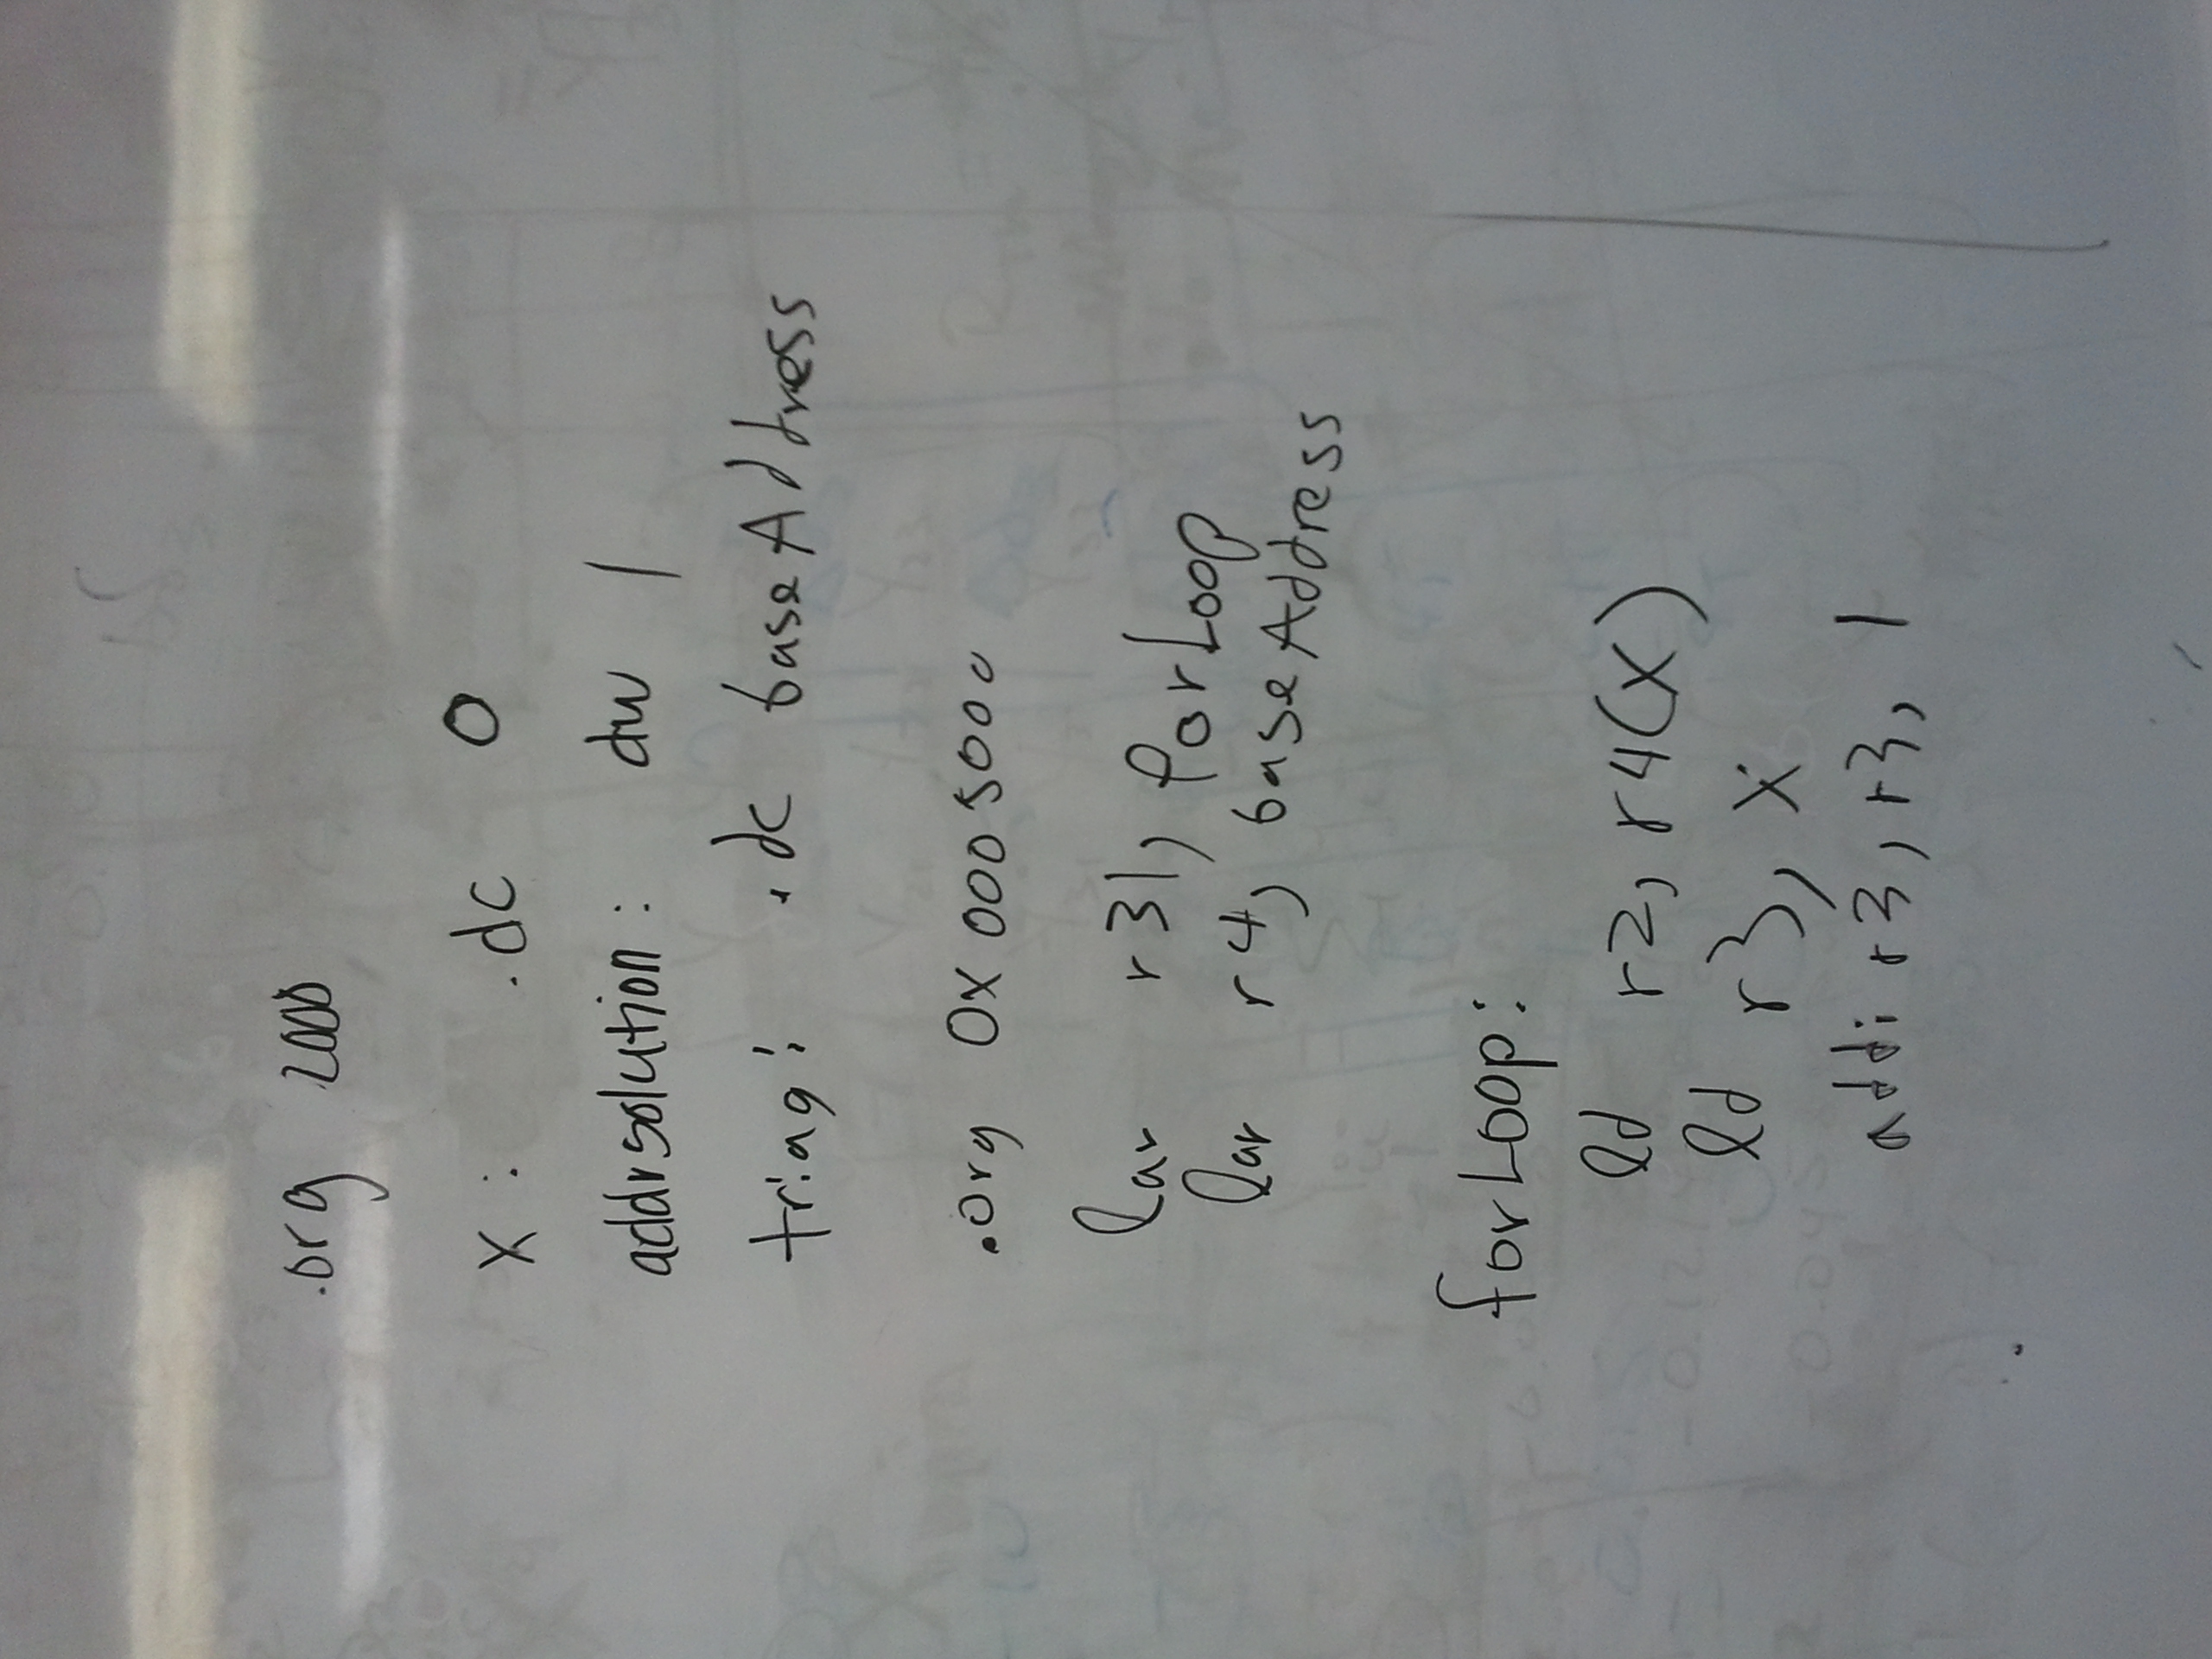 .org 2000
x: .dc 0
addrsolution: dw 1
triag: .dc baseAddress
.org 0x0005000
lar r31, forLoop
lar r4, baseAddress
forLoop:
ld r2, r4(x)
ld r3, x
addi r3, r3, 1